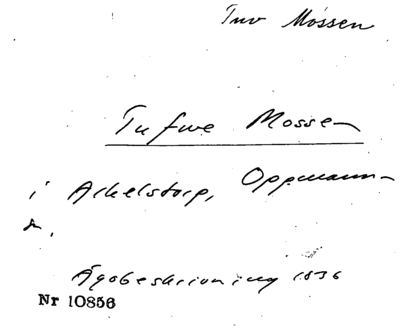 Tuv Mossen
Tufwe Mossen
i Arkelstorp, Oppmann-
a.
Ägobeskrivning 1836
Nr 10856